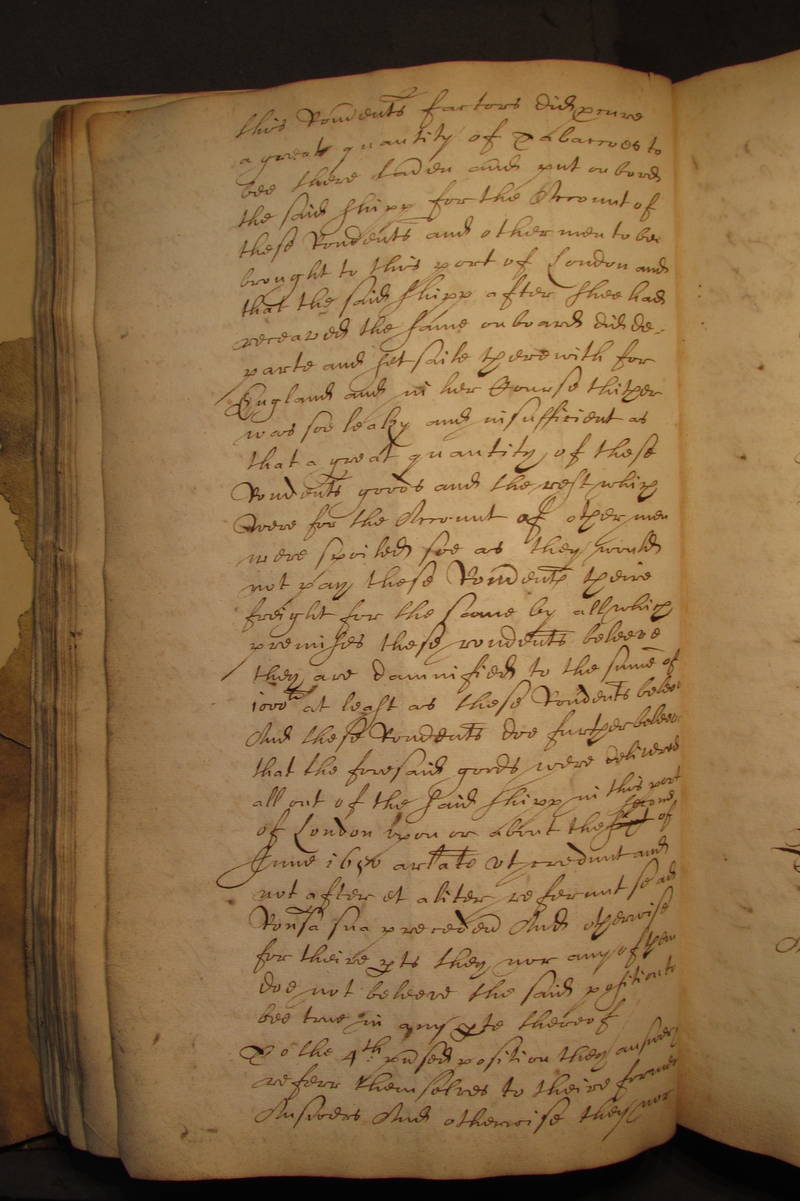 this Rondents factors did pcure
a great quantity of Tabaccoes to
bee there laden and put on bord
the said shipp for the Account of
these Rondents and other men to be
brought to this port of London and
that the said shipp after shee had
receaved the same on board did de-
parte and set saile therewith for
England and in her Course thither
was soe leaky and insufficient as
that a great quantity of these
Rondents goods and the rest which
were for the Account of other men
were spoiled soe as they would
not pay these Rondents theire
freight for the same by all which
premises these rondents beleeve
they are damnified to the sume of
1000li at least as these Rondents beleeve
And these Rondents doe further beleeve
that the foresaid goods were delivered
all out of the said shipp in this port
of London upon or about the second of
June 1650 arlate ut credunt and
not after et aliter referunt se ad
Ronsa sua preceden And otherwise
for theire pts they nor any of them
doe not beleeve the said position to
bee true in any pte thereof
To the 4th pnsed position they answer
referr themselves to theire former
Answers And otherwise they nor